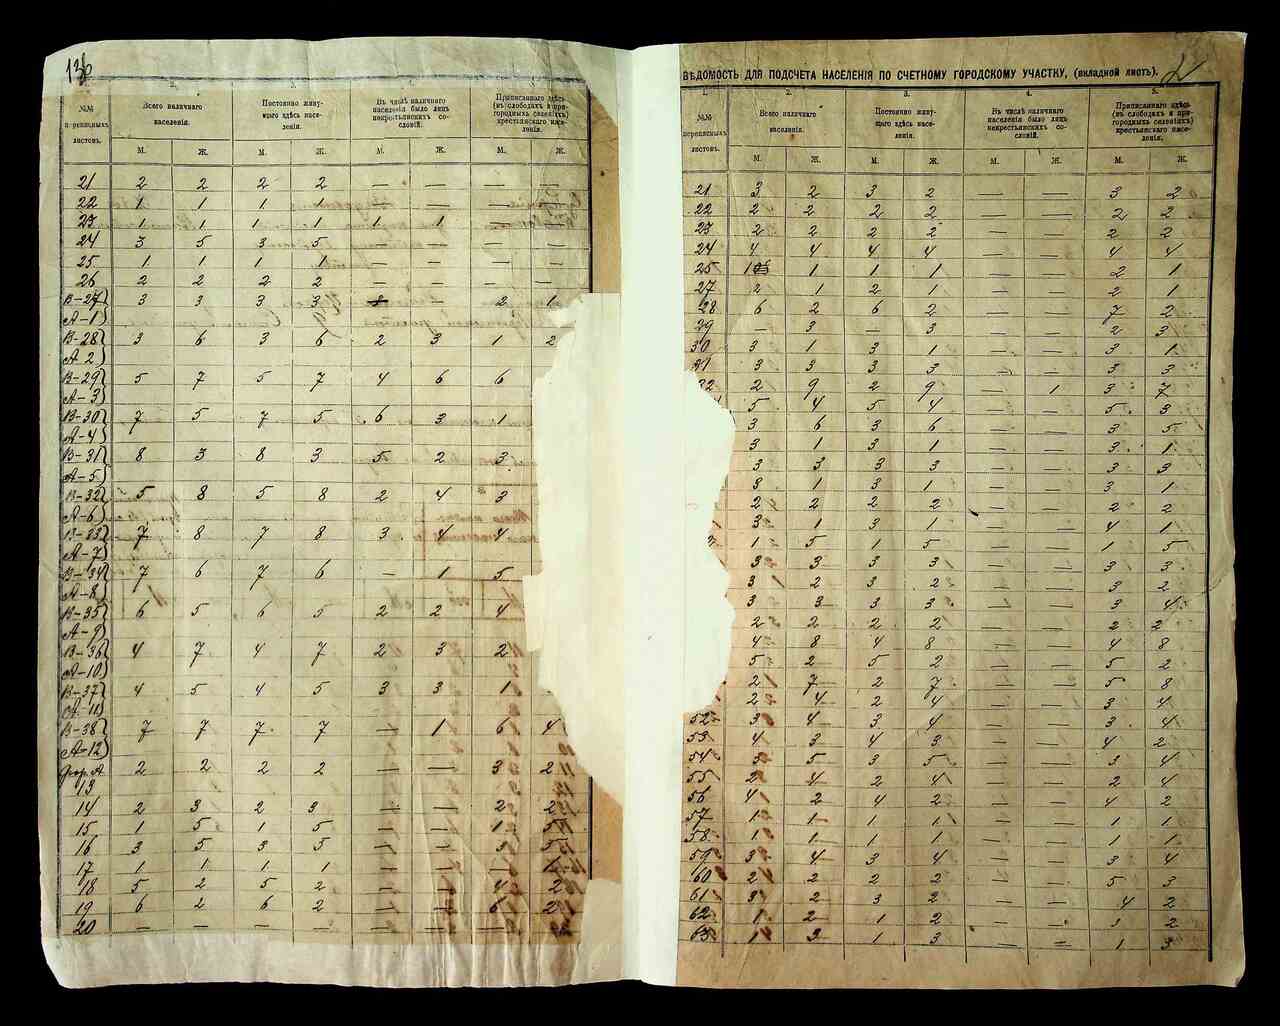 136
2. 3. 4. 5.
№№ переписныхъ листовъ. Всего наличнаго населенія. Постоянно живущаго здѣсь населенія. Въ числѣ наличнаго населенія было лицъ некрестьянскихъ сословій. Приписаннаго здѣсь (въ слободахъ и пригородныхъ селеніяхъ) крестьянскаго населенія.
М. Ж. М. Ж. М. Ж. М. Ж.
21 2 2 2 2 — — — —
22 1 1 1 1 — — —
23 1 1 1 1 1 1 — —
24 3 5 3 5 — — — —
25 1 1 1 1 — — — —
26 2 2 2 2 — — — —
В-27 3 3 3 3 — 2 1
А-1
В-28 3 6 3 6 2 3 1 2
А 2
В-29 5 7 5 7 4 6 6
А-3
В-30 7 5 7 5 6 3 1
А-4
В-31 8 3 8 3 5 2 3
А-5
В-32 5 8 5 8 2 4 3
А-6
В-33 7 8 7 8 3 4 4
А-7
В-34 7 6 7 6 — 1 5
А-8
В-35 6 5 6 5 2 2 4
А-9
В-36 4 7 4 7 2 3 2
А-10
В-37 4 5 4 5 3 3 1
А-11
В-38 7 7 7 7 — 1 6 4
А-12
фор. А 2 2 2 2 — — 3 2
13
14 2 3 2 3 — — 2 2
15 1 5 1 5 — — 1
16 3 5 3 5 — — 3
17 1 1 1 1 — —
18 5 2 5 2 — — 4 2
19 6 2 6 2 — — 6 2
20 — — — — — —
ВѢДОМОСТЬ ДЛЯ ПОДСЧЕТА НАСЕЛЕНІЯ ПО СЧЕТНОМУ ГОРОДСКОМУ УЧАСТКУ, (вкладной листъ).
1. 2. 3. 4. 5.
№№ переписныхъ листовъ. Всего наличнаго населенія. Постоянно живущаго здѣсь населенія. Въ числѣ наличнаго населенія было лицъ некрестьянскихъ сословій. Приписаннаго здѣсь (въ слободахъ и пригородныхъ селеніяхъ) крестьянскаго населенія.
М. Ж. М. Ж. М. Ж. М. Ж.
21 3 2 3 2 — — 3 2
22 2 2 2 2 — — 2 2
23 2 2 2 2 — — 2 2
24 4 4 4 4 — — 4 4
25 1 1 1 1 — — 2 1
27 2 1 2 1 — — 2 1
28 6 2 6 2 — — 7 2
29 — 3 — 3 — — 2 3
30 3 1 3 1 — — 3 1
31 3 3 3 3 — — 3 3
32 2 9 2 9 — 1 3 7
5 4 5 4 — — 5 3
3 6 3 6 — — 3 5
3 1 3 1 — — 3 1
3 3 3 3 — — 3 3
3 1 3 1 — — 3 1
2 2 2 2 — — 2 2
3 1 3 1 — — 4 1
1 5 1 5 — — 1 5
3 3 3 3 — — 3 3
3 2 3 2 — — 3 2
3 3 3 3 — — 3 4
2 2 2 2 — — 2 2
4 8 4 8 — — 4 8
5 2 5 2 — — 5 2
2 7 2 7 — — 5 8
2 4 2 4 — — 3 4
52 3 4 3 4 — — 3 4
53 4 3 4 3 — — 4 2
54 3 5 3 5 — — 3 4
55 2 4 2 4 — — 2 4
56 4 2 4 2 — — 4 2
57 1 1 1 1 — — 1 1
58 1 1 1 1 — — 1 1
59 3 4 3 4 — — 3 4
60 2 2 2 2 — — 5 3
61 3 2 3 2 — — 4 2
62 1 2 1 2 — — 3 2
63 1 3 1 3 — — 1 3